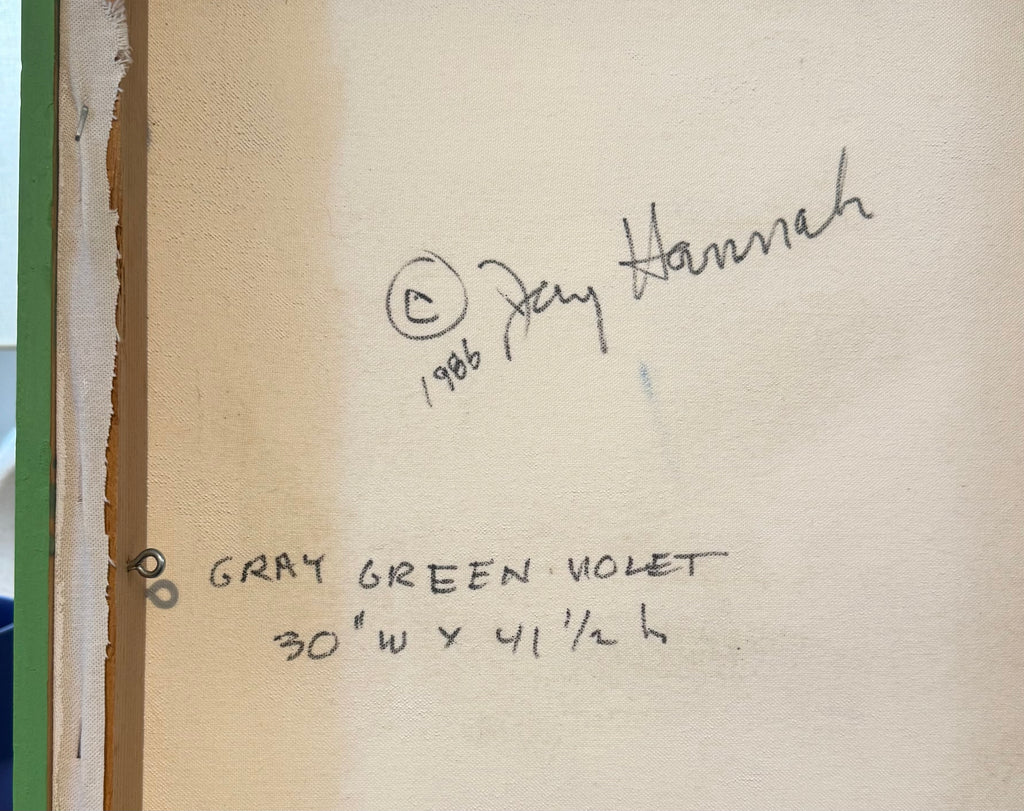 © Jay Hannah
1986
GRAY GREEN VIOLET
30" W X 41 1/2 h